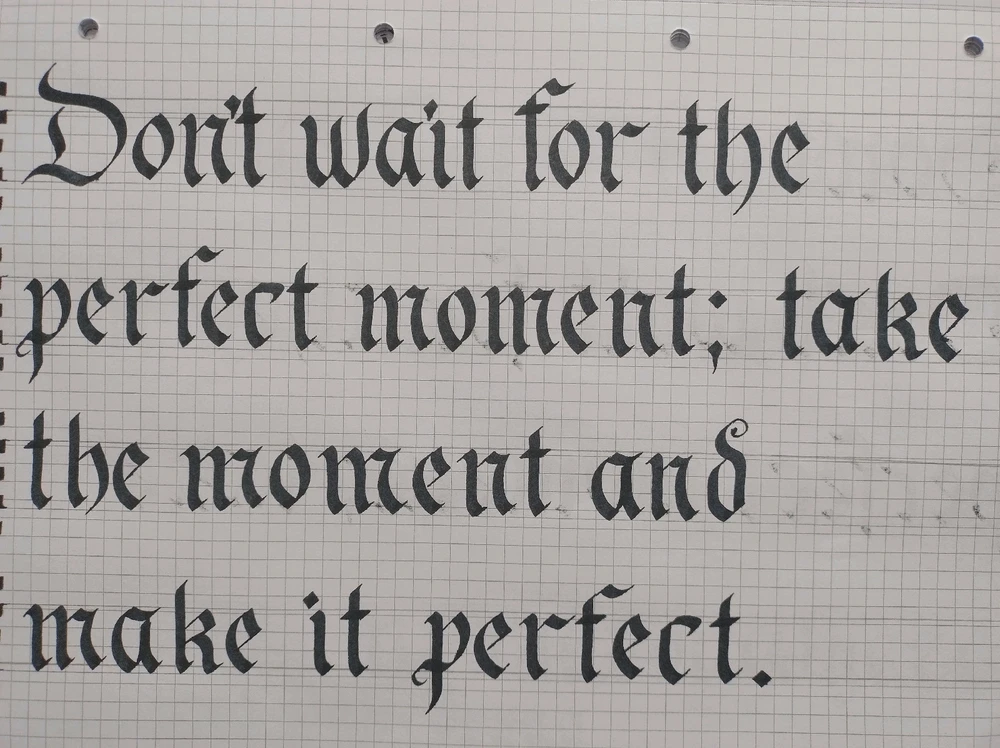 Don't wait for the
perfect moment; take
the moment and
make it perfect.